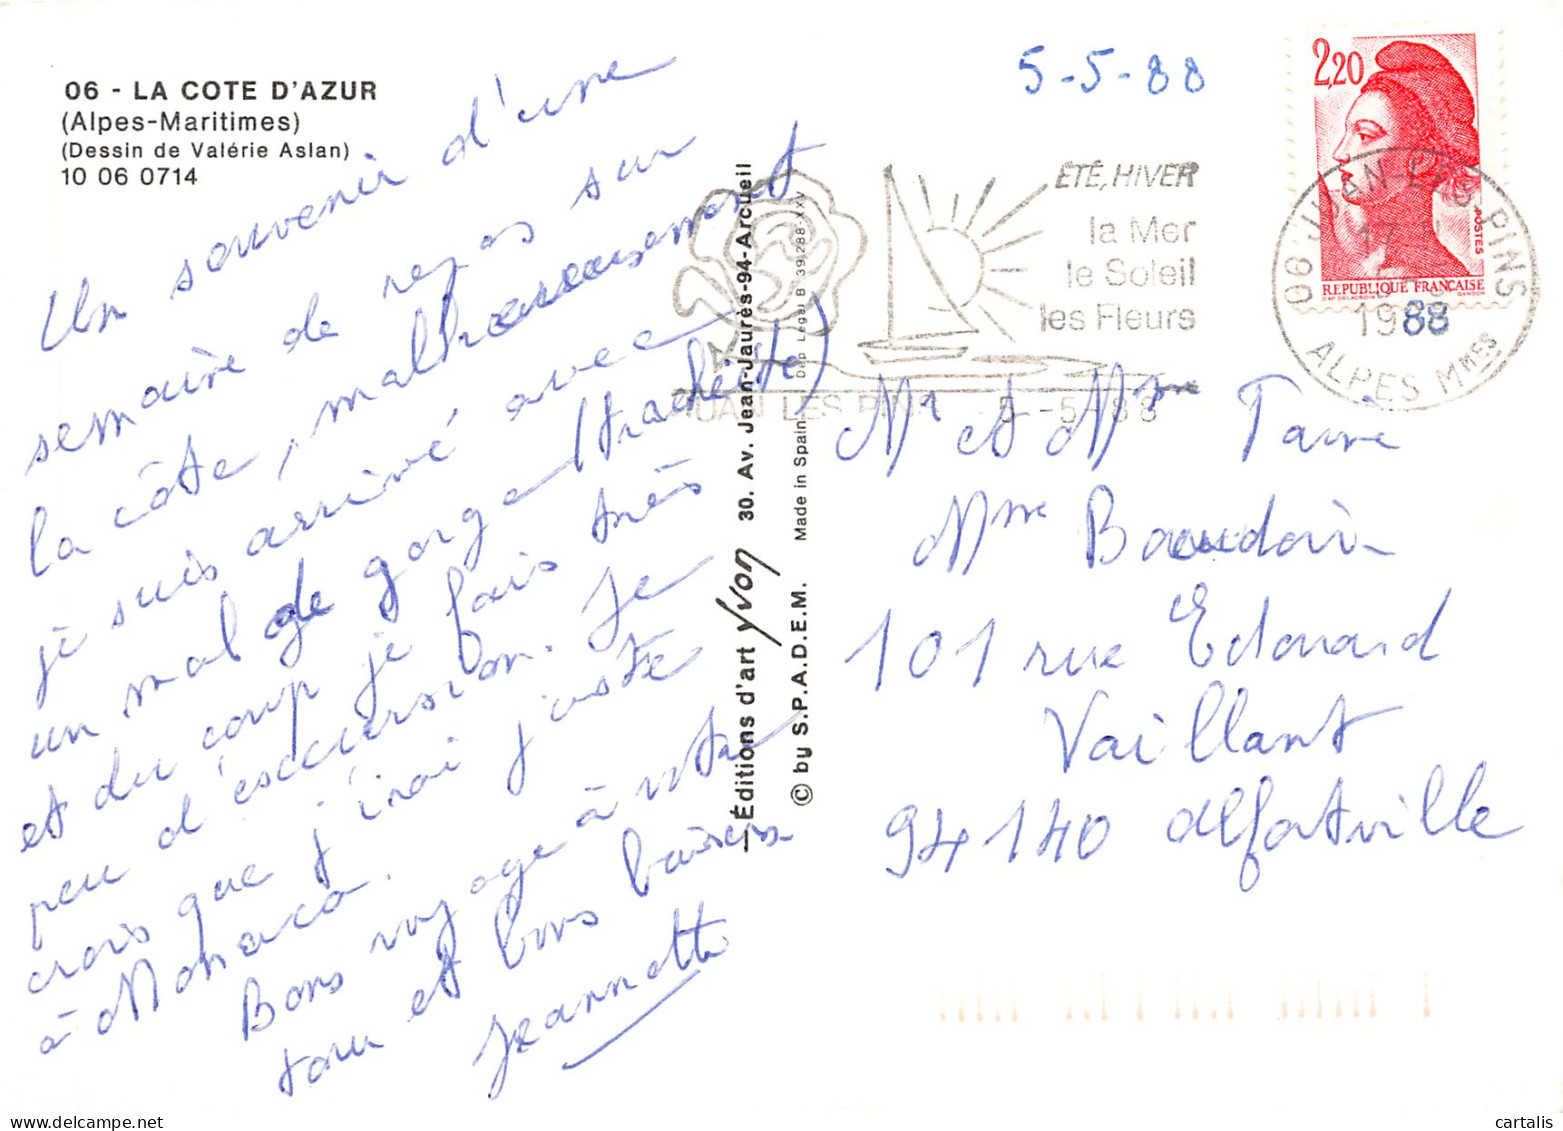 06 - LA COTE D'AZUR
(Alpes-Maritimes)
(Dessin de Valérie Aslan)
10 06 0714
Un souvenir d'une
semaine de repos sur
la côte, malheureusement
je suis arrivé avec
un mal de gorge (trachéite)
et du coup je fais très
peu d'excursion. Je
crois que j'irai juste
à Monaco.
Bons voyage à votre
tour et bons baisers
Jeannette
—Éditions d'art Yvon 30. Av. Jean-Jaurès-94-Arcueil
© by S.P.A.D.E.M. Made in Spain Dep Legal B 39.288-XXV
5-5-88
ÉTÉ, HIVER
la Mer
le Soleil
les Fleurs
JUAN LES PINS 5-5-88
2,20
POSTES
REPUBLIQUE FRANÇAISE
D'AP. DELACROIX GANDON
06 JUAN-LES-PINS
17
1988
ALPES MMES
Mr et Mme Faivre
Mme Baudoin
101 rue Edouard
Vaillant
94140 Alfortville
cartalis